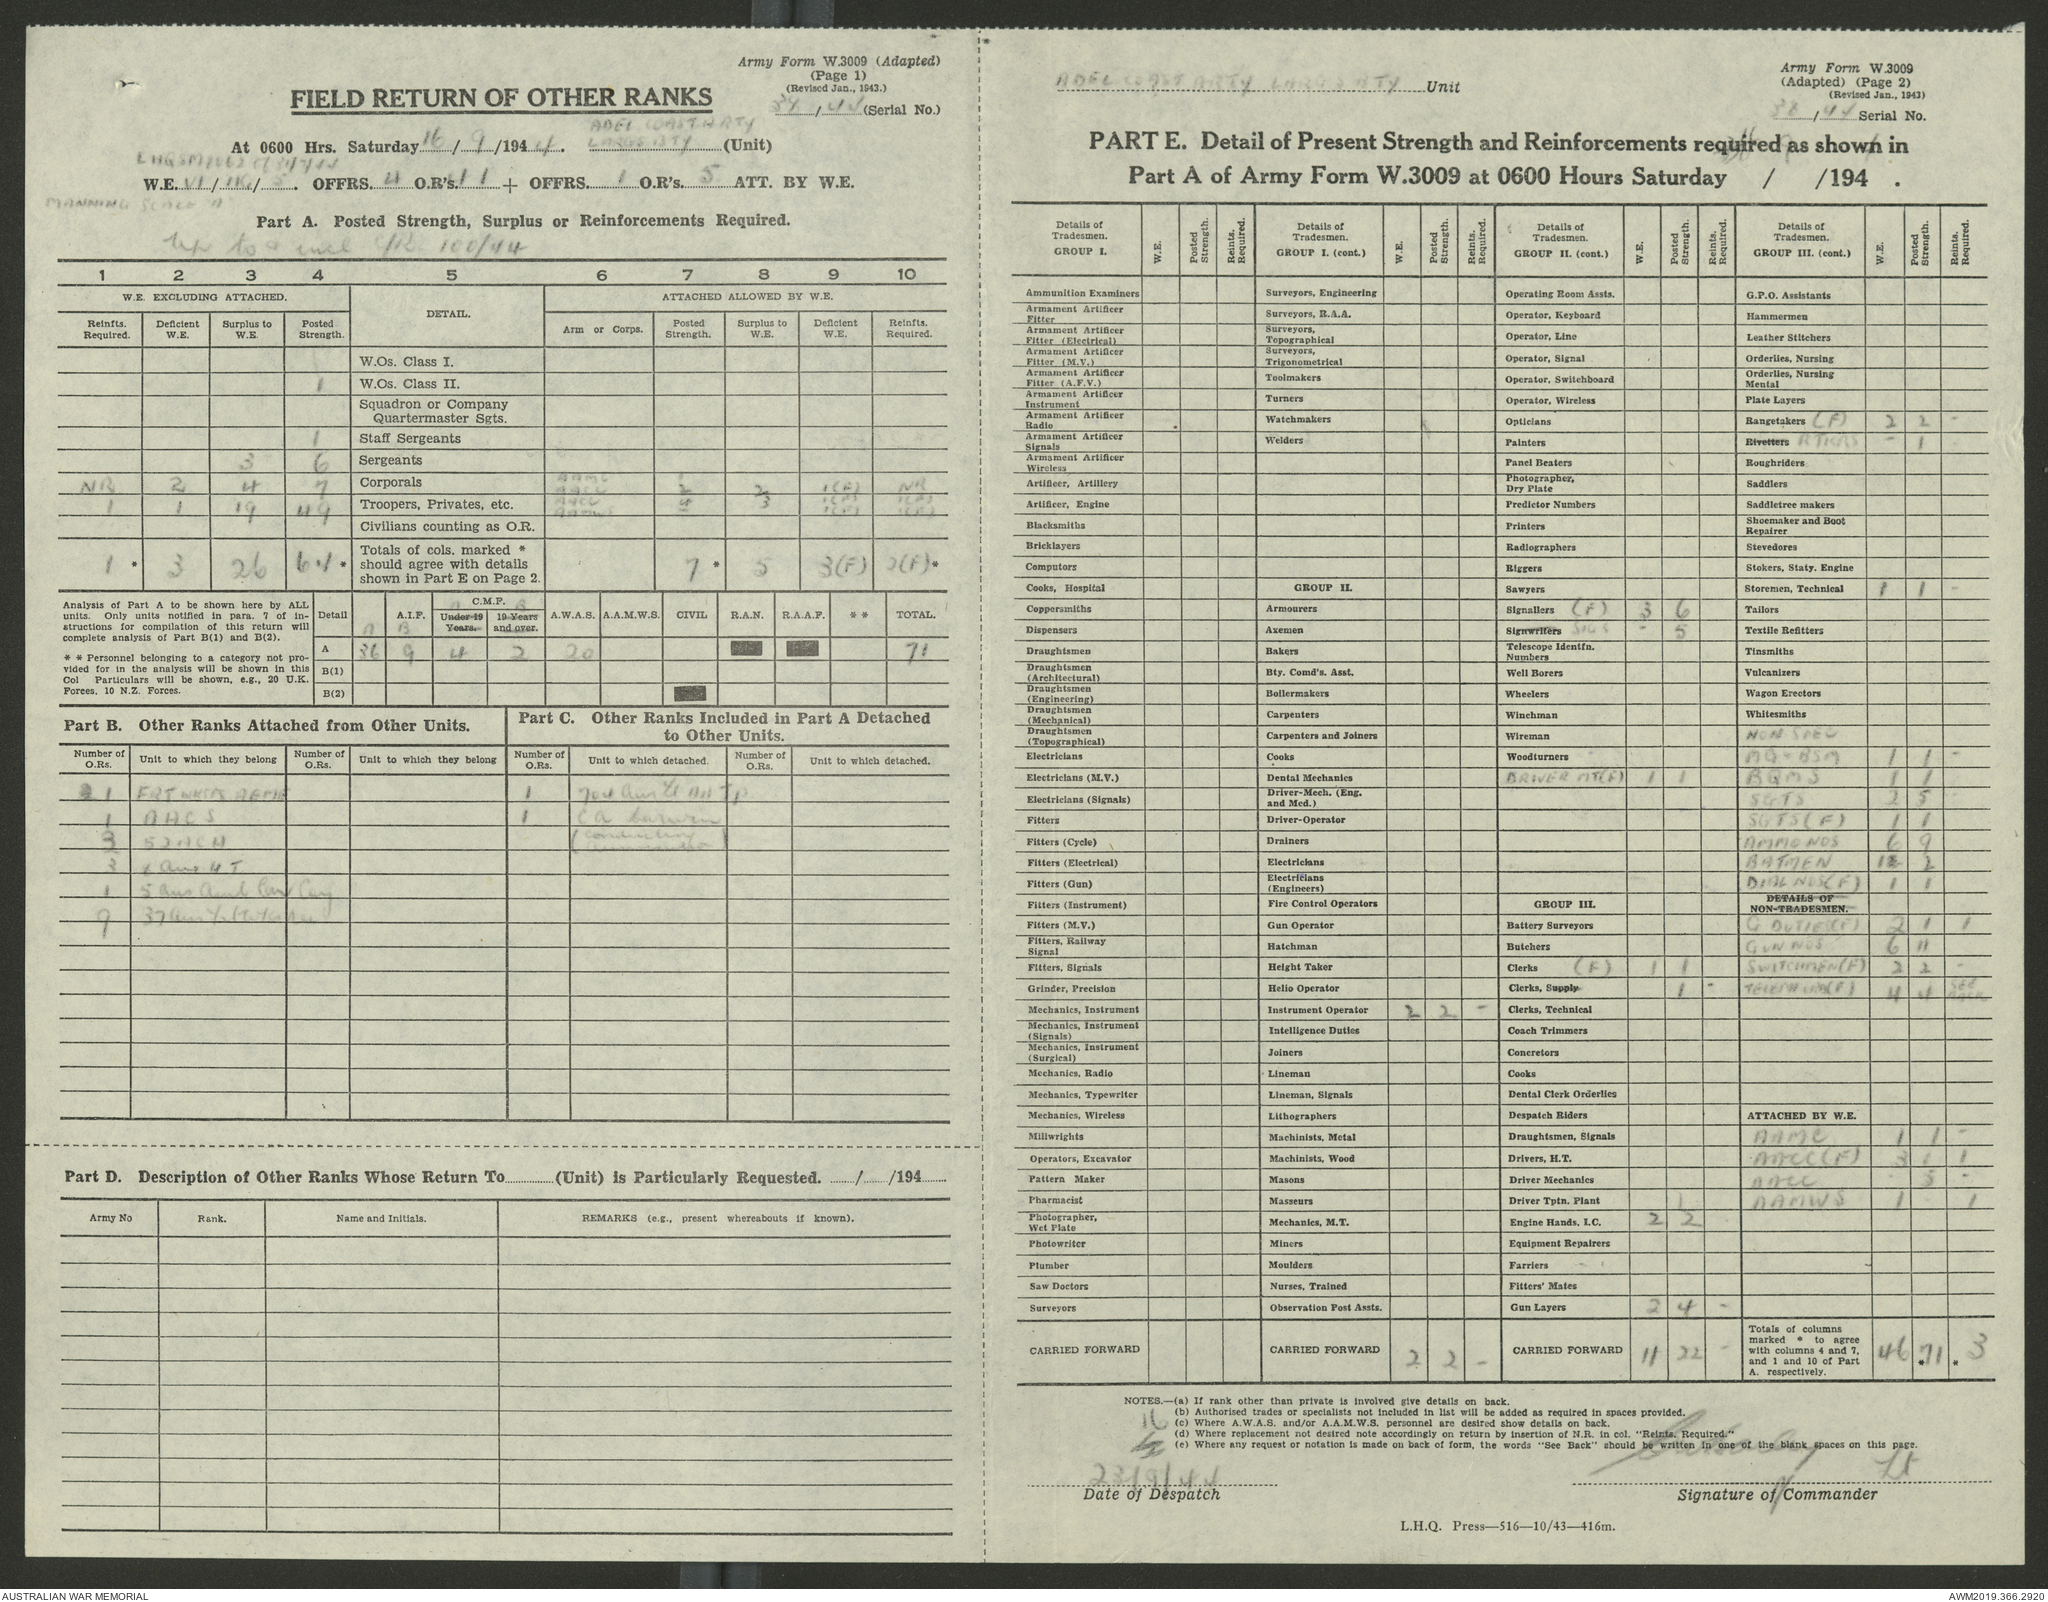 Army Form W.3009 (Adapted)
(Page 1)
(Revised Jan., 1943.)
38/44 (Serial No.)
FIELD RETURN OF OTHER RANKS
ADEL COAST ARTY
At 0600 Hrs. Saturday 16/9/1944. LARGS BTY (Unit)
W.E. VI/1K/5. OFFRS. 4 O.R's. 41 + OFFRS. 1 O.R's. 5 ATT. BY W.E.
MANNING SCALE A
Part A. Posted Strength, Surplus or Reinforcements Required.
Up to & incl 100/44
1 2 3 4 5 6 7 8 9 10
W.E. EXCLUDING ATTACHED. DETAIL. ATTACHED ALLOWED BY W.E.
Reinfts. Required. Deficient W.E. Surplus to W.E. Posted Strength. Arm or Corps. Posted Strength. Surplus to W.E. Deficient W.E. Reinfts. Required.
W.Os. Class I.
1 W.Os. Class II.
Squadron or Company Quartermaster Sgts.
1 Staff Sergeants
3 6 Sergeants
NR 2 4 7 Corporals AAMC AACC 2 2 1(F) NR
1 1 19 49 Troopers, Privates, etc. AACC AAMWS 4 3 1(F) 1(F)
Civilians counting as O.R.
1* 3 26 64* Totals of cols. marked * should agree with details shown in Part E on Page 2. 7* 5 3(F) 2(F)*
Analysis of Part A to be shown here by ALL units. Only units notified in para. 7 of instructions for compilation of this return will complete analysis of Part B(1) and B(2).
* * Personnel belonging to a category not provided for in the analysis will be shown in this Col Particulars will be shown, e.g., 20 U.K. Forces, 10 N.Z. Forces.
Detail A.I.F. C.M.F. Under 19 Years. 19 Years and over. A.W.A.S. A.A.M.W.S. CIVIL R.A.N. R.A.A.F. * * TOTAL.
A B A B
A 36 9 4 2 20 71
B(1)
B(2)
Part B. Other Ranks Attached from Other Units.
Number of O.Rs. Unit to which they belong Number of O.Rs. Unit to which they belong
1 FRT WKSPS AEME
1 AACS
3 52 ACH
3
1 5 Aus Amb Car Coy
9
Part C. Other Ranks Included in Part A Detached to Other Units.
Number of O.Rs. Unit to which detached. Number of O.Rs. Unit to which detached.
1
1 CA Darwin
Part D. Description of Other Ranks Whose Return To (Unit) is Particularly Requested. / /194
Army No Rank. Name and Initials. REMARKS (e.g., present whereabouts if known).
ADEL COAST ARTY LARGS BTY Unit
Army Form W.3009
(Adapted) (Page 2)
(Revised Jan., 1943)
38/44 Serial No.
PART E. Detail of Present Strength and Reinforcements required as shown in
Part A of Army Form W.3009 at 0600 Hours Saturday / /194 .
Details of Tradesmen. GROUP I. W.E. Posted Strength. Reints. Required.
Ammunition Examiners
Armament Artificer Fitter
Armament Artificer Fitter (Electrical)
Armament Artificer Fitter (M.V.)
Armament Artificer Fitter (A.F.V.)
Armament Artificer Instrument
Armament Artificer Radio
Armament Artificer Signals
Armament Artificer Wireless
Artificer, Artillery
Artificer, Engine
Blacksmiths
Bricklayers
Computors
Cooks, Hospital
Coppersmiths
Dispensers
Draughtsmen
Draughtsmen (Architectural)
Draughtsmen (Engineering)
Draughtsmen (Mechanical)
Draughtsmen (Topographical)
Electricians
Electricians (M.V.)
Electricians (Signals)
Fitters
Fitters (Cycle)
Fitters (Electrical)
Fitters (Gun)
Fitters (Instrument)
Fitters (M.V.)
Fitters, Railway Signal
Fitters, Signals
Grinder, Precision
Mechanics, Instrument
Mechanics, Instrument (Signals)
Mechanics, Instrument (Surgical)
Mechanics, Radio
Mechanics, Typewriter
Mechanics, Wireless
Millwrights
Operators, Excavator
Pattern Maker
Pharmacist
Photographer, Wet Plate
Photowriter
Plumber
Saw Doctors
Surveyors
CARRIED FORWARD
Details of Tradesmen. GROUP I. (cont.) W.E. Posted Strength. Reints. Required.
Surveyors, Engineering
Surveyors, R.A.A.
Surveyors, Topographical
Surveyors, Trigonometrical
Toolmakers
Turners
Watchmakers
Welders
GROUP II.
Armourers
Axemen
Bakers
Bty. Comd's. Asst.
Boilermakers
Carpenters
Carpenters and Joiners
Cooks
Dental Mechanics
Driver-Mech. (Eng. and Med.)
Driver-Operator
Drainers
Electricians
Electricians (Engineers)
Fire Control Operators
Gun Operator
Hatchman
Height Taker
Helio Operator
Instrument Operator 2 2 -
Intelligence Duties
Joiners
Lineman
Lineman, Signals
Lithographers
Machinists, Metal
Machinists, Wood
Masons
Masseurs
Mechanics, M.T.
Miners
Moulders
Nurses, Trained
Observation Post Assts.
CARRIED FORWARD 2 2 -
Details of Tradesmen. GROUP II. (cont.) W.E. Posted Strength. Reints. Required.
Operating Room Assts.
Operator, Keyboard
Operator, Line
Operator, Signal
Operator, Switchboard
Operator, Wireless
Opticians
Painters
Panel Beaters
Photographer, Dry Plate
Predictor Numbers
Printers
Radiographers
Riggers
Sawyers
Signallers (F) 3 6
Signwriters SIGS - 5
Telescope Identfn. Numbers
Well Borers
Wheelers
Winchman
Wireman
Woodturners
DRIVER MT(F) 1 1
GROUP III.
Battery Surveyors
Butchers
Clerks (F) 1 1
Clerks, Supply 1 -
Clerks, Technical
Coach Trimmers
Concretors
Cooks
Dental Clerk Orderlies
Despatch Riders
Draughtsmen, Signals
Drivers, H.T.
Driver Mechanics
Driver Tptn. Plant 1
Engine Hands, I.C. 2 2
Equipment Repairers
Farriers
Fitters' Mates
Gun Layers 2 4 -
CARRIED FORWARD 11 22 -
Details of Tradesmen. GROUP III. (cont.) W.E. Posted Strength. Reints. Required.
G.P.O. Assistants
Hammermen
Leather Stitchers
Orderlies, Nursing
Orderlies, Nursing Mental
Plate Layers
Rangetakers (F) 2 2 -
Rivetters RTKRS - 1
Roughriders
Saddlers
Saddletree makers
Shoemaker and Boot Repairer
Stevedores
Stokers, Staty. Engine
Storemen, Technical 1 1 -
Tailors
Textile Refitters
Tinsmiths
Vulcanizers
Wagon Erectors
Whitesmiths
NON SPEC
MG-BSM 1 1 -
BQMS 1 1
SGTS 2 5 -
SGTS(F) 1 1
AMMO NOS 6 9
BATMEN 2
DIAL NOS(F) 1 1
DETAILS OF NON-TRADESMEN.
G DUTIES(F) 2 1 1
GUN NOS 6 11
SWITCHMEN(F) 2 2 -
TELEPHON(F) 4 4 SEE BACK
ATTACHED BY W.E.
AAMC 1 1 -
AACC(F) 3 1 1
AACC 5 -
AAMWS 1 1
Totals of columns marked * to agree with columns 4 and 7, and 1 and 10 of Part A. respectively. 46 *71 * 3
NOTES.—(a) If rank other than private is involved give details on back.
(b) Authorised trades or specialists not included in list will be added as required in spaces provided.
(c) Where A.W.A.S. and/or A.A.M.W.S. personnel are desired show details on back.
(d) Where replacement not desired note accordingly on return by insertion of N.R. in col. "Reints. Required."
(e) Where any request or notation is made on back of form, the words "See Back" should be written in one of the blank spaces on this page.
16
23/9/44
Lt
Date of Despatch
Signature of Commander
L.H.Q. Press—516—10/43—416m.
AUSTRALIAN WAR MEMORIAL
AWM2019.366.2920